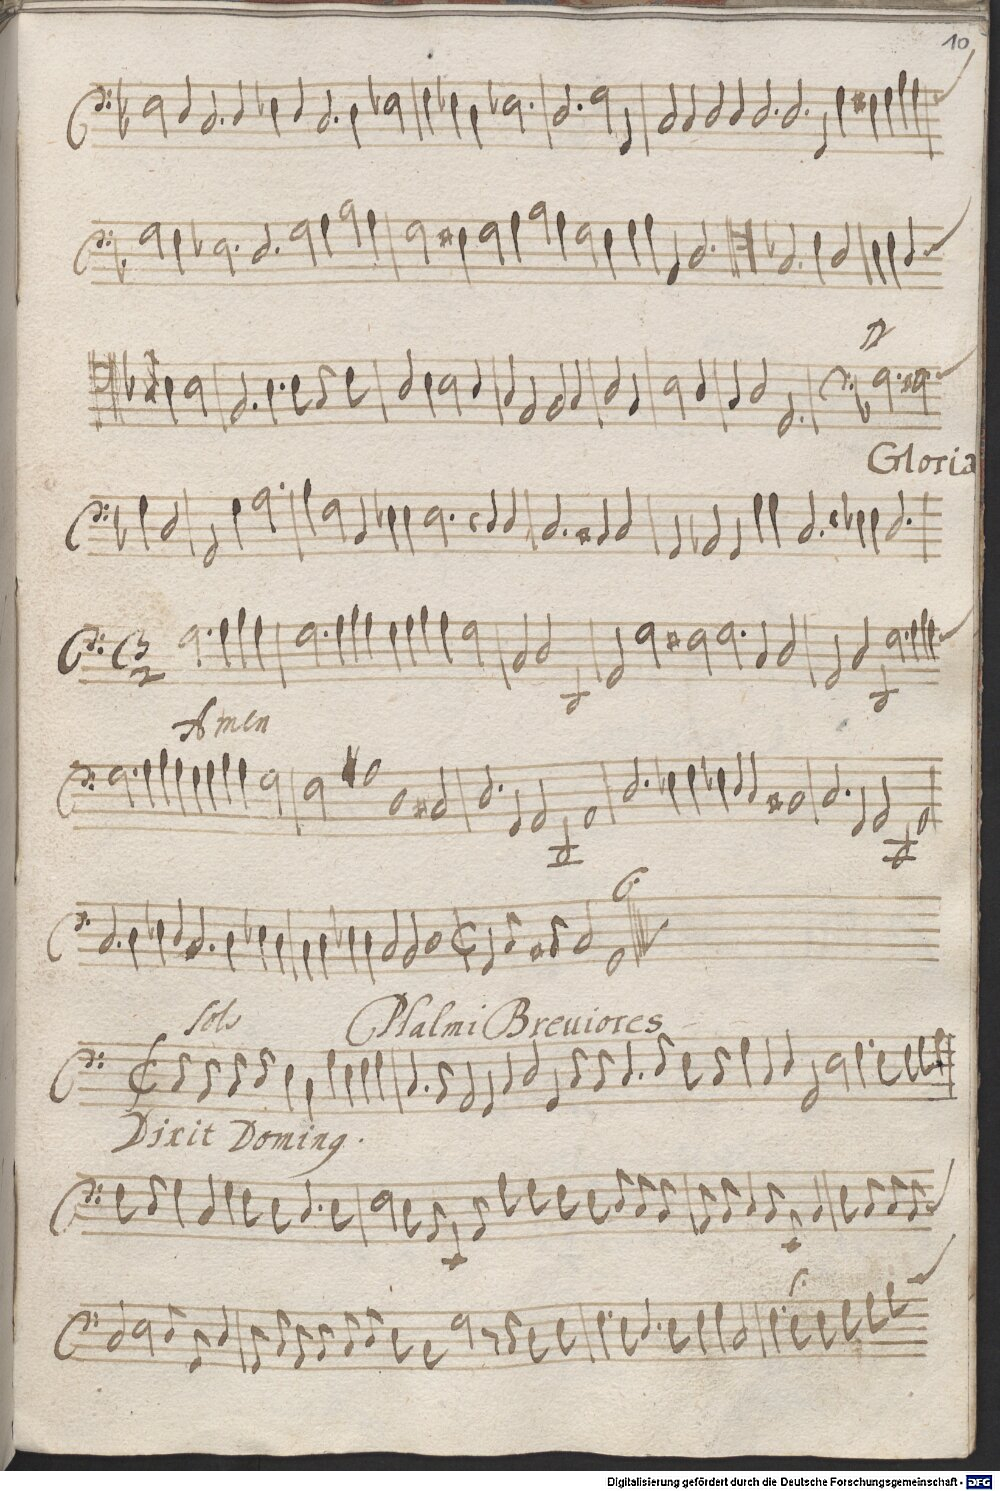 10
Gloria
Amen
Solo
Psalmi Breuiores
Dixit Doming.
Digitalisierung gefördert durch die Deutsche Forschungsgemeinschaft - DFG